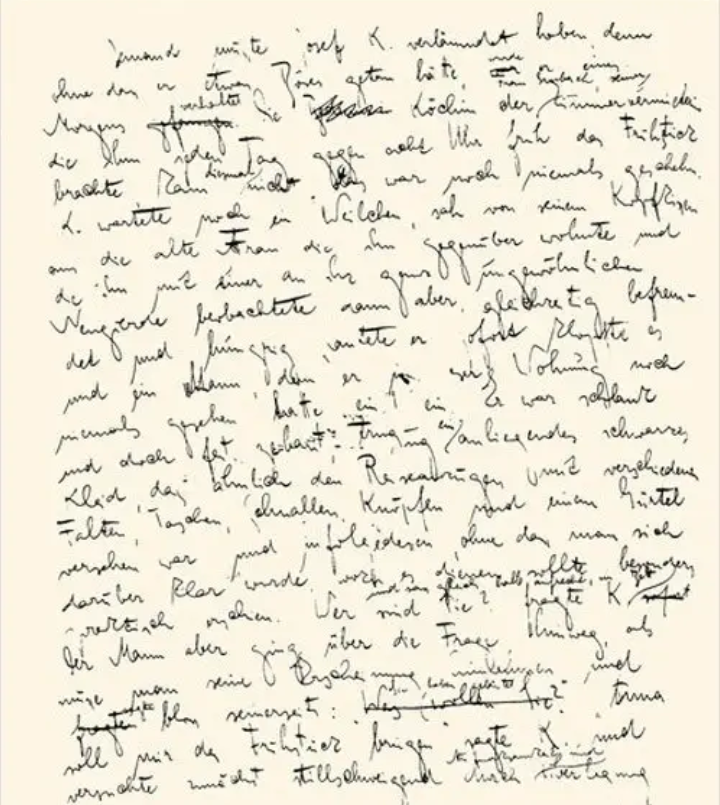 Jemand musste Josef K. verläumdet haben denn
ohne dass er etwas Böses getan hätte,
Morgens verhaftet Die Köchin der Zimmervermieterin
die ihm jeden Tag gegen acht Uhr früh das Frühstück
brachte kam diesmal nicht Das war noch niemals geschehn.
K. wartete noch ein Weilchen, sah von seinem Kopfkissen
aus die alte Frau die ihm gegenüber wohnte und
die ihn mit einer an ihr ganz ungewöhnlichen
Neugierde beobachtete dann aber, gleichzeitig befrem-
det und hungrig, läutete er Sofort klopfte es
und ein Mann, den er in Wohnung noch
niemals gesehen hatte ein Er war schlank
und doch fest gebaut, er trug ein anliegendes schwarzes
Kleid, das ähnlich den Reiseanzügen mit verschiedenen
Falten, Taschen, Schnallen, Knöpfen und einem Gürtel
versehen war und infolgedessen, ohne dass man sich
darüber klar wurde, wozu es dienen sollte besonders
praktisch erschien. Wer sind Sie? fragte K
Der Mann aber ging über die Frage hinweg, als
müsse man seine Erscheinung hinnehmen und
sagte bloss seinerseits: Anna
soll mir das Frühstück bringen sagte K und
versuchte zunächst stillschweigend durch Überlegung